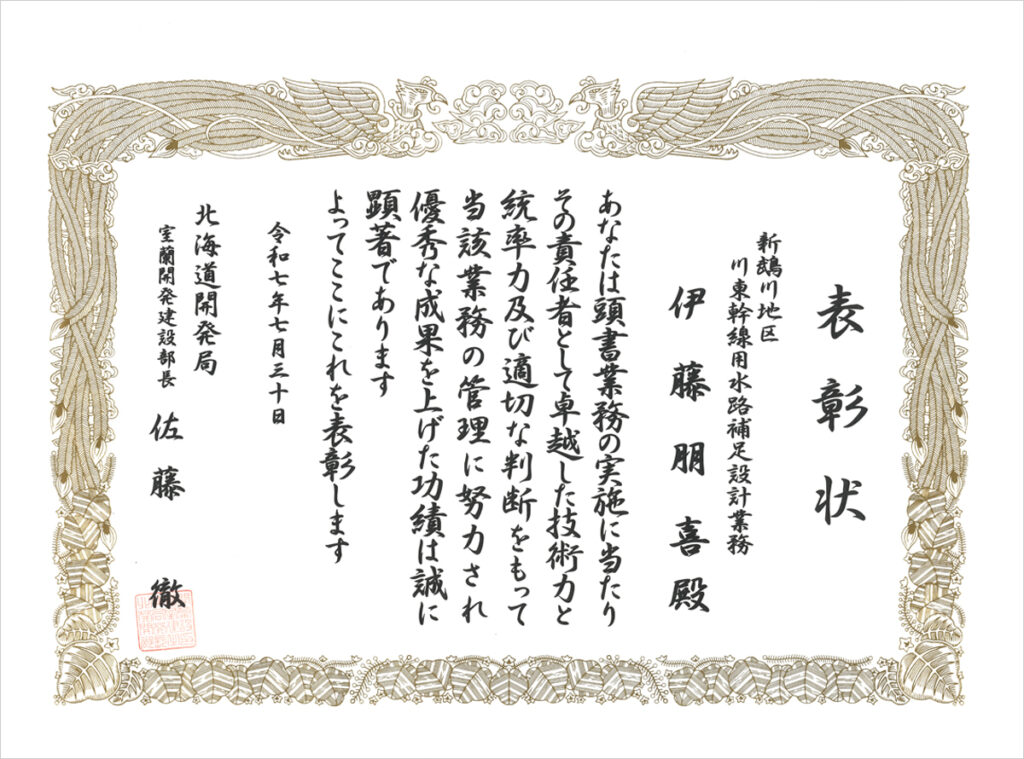 表彰状
新鵡川地区
川東幹線用水路補足設計業務
伊藤朋喜殿
あなたは頭書業務の実施に当たり
その責任者として卓越した技術力と
統率力及び適切な判断をもって
当該業務の管理に努力され
優秀な成果を上げた功績は誠に
顕著であります
よってここにこれを表彰します
令和七年七月三十日
北海道開発局
室蘭開発建設部長 佐藤 徹